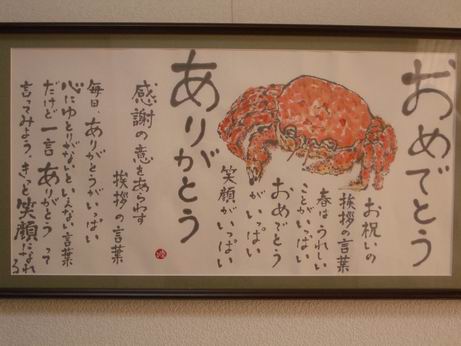 おめでとう
お祝いの
挨拶の言葉
春はうれしい
ことがいっぱい
おめでとう
がいっぱい
笑顔がいっぱい
ありがとう
感謝の意をあらわす
挨拶の言葉
毎日、ありがとうがいっぱい
心にゆとりがないといえない言葉
だけど一言ありがとうって
言ってみよう、きっと笑顔になれる